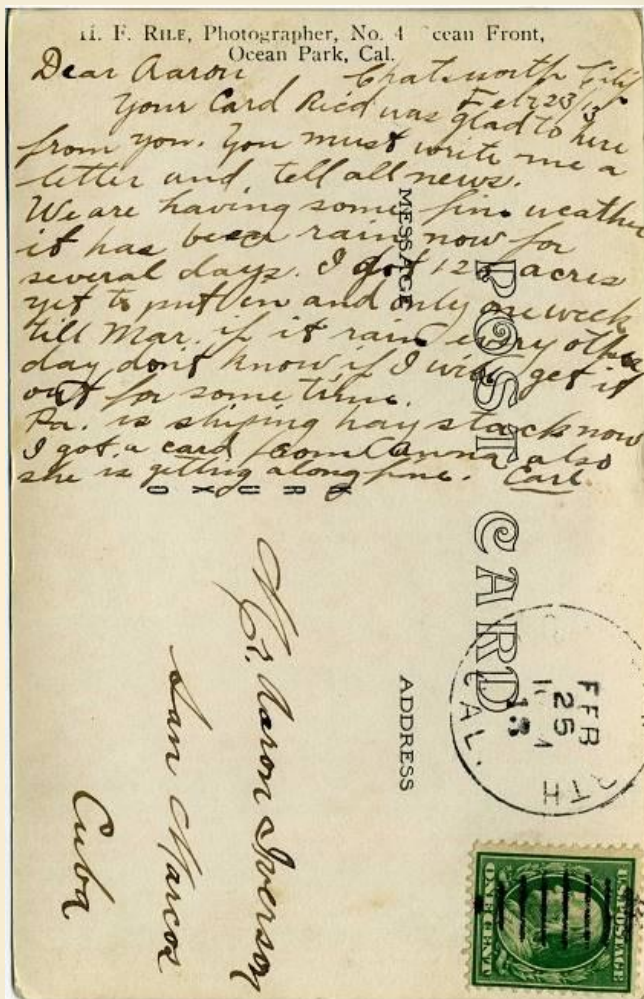 H. F. RILE, Photographer, No. 4 Ocean Front,
Ocean Park, Cal.
Dear Aaron
Chatsworth
Feb 23/13
Your Card Ricd was glad to here
from you. You must write me a
letter and tell all news.
We are having some fine weather
it has been rain now for
several days. I got acres
yet to put in and only one week
till Mar. if it rain every other
day dont know if I will get it
out for some time.
Pa. is shiping hay stack now
I got a card from Anna also
she is getting along fine. Earl
MESSAGE
POST CARD
KRUXO
ADDRESS
Mr. Aaron Iverson
San Marcos
Cuba
FEB
25
13
TH
CAL.
U.S. POSTAGE
ONE CENT